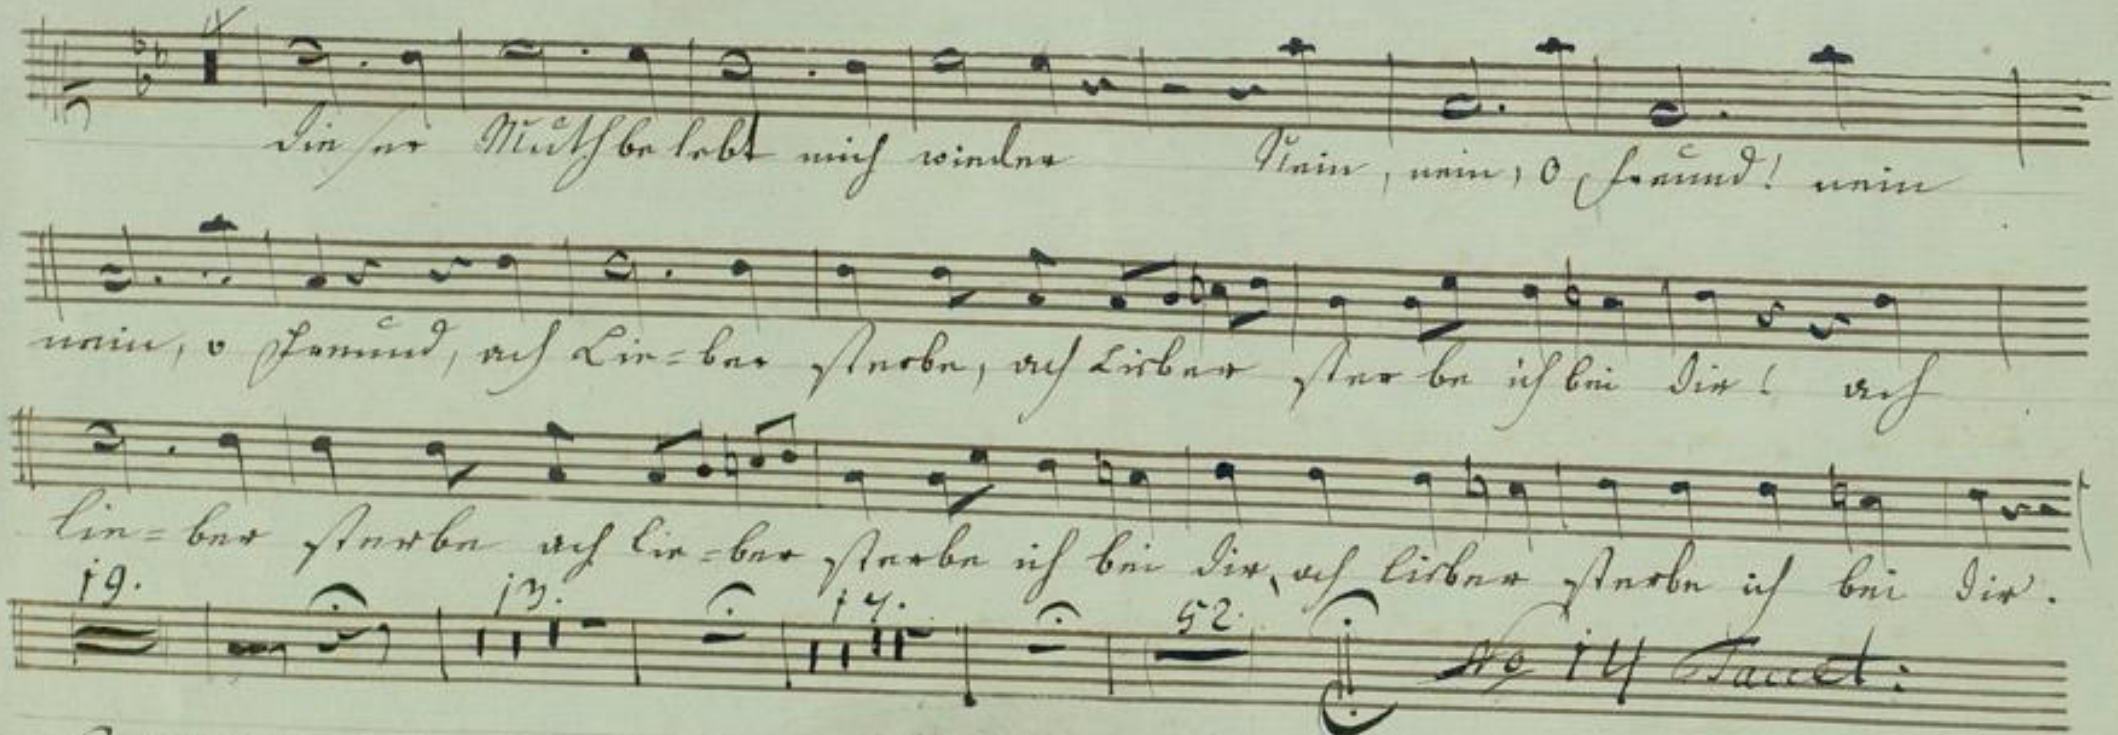 4
dieser Muth belebt mich wieder Nein, nein, o Freund! nein
nein, o Freund, ach Lie=ber sterbe, ach Lieber sterbe ich bei dir! ach
lie=ber sterbe ach lie=ber sterbe ich bei dir, ach lieber sterbe ich bei dir.
19. 13. 17. 52.
No 14 Tacet: